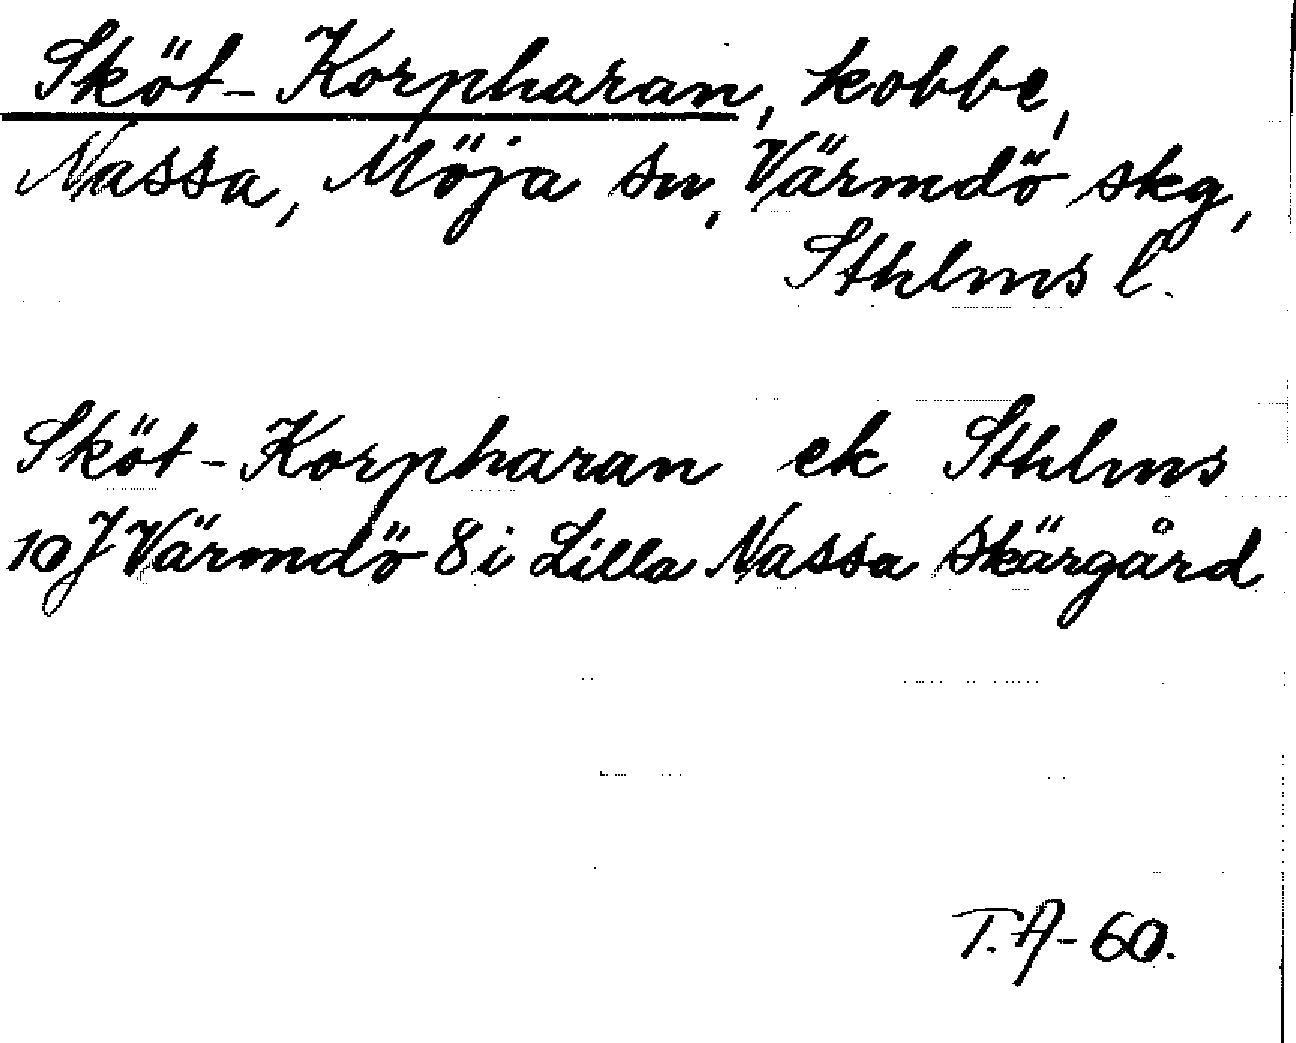 Sköt-Korpharan, kobbe,
Nassa, Möja sn, Värmdö skg,
Sthlms l.
Sköt-Korpharan ek Sthlms
10J Värmdö 8i Lilla Nassa skärgård
T.A-60.